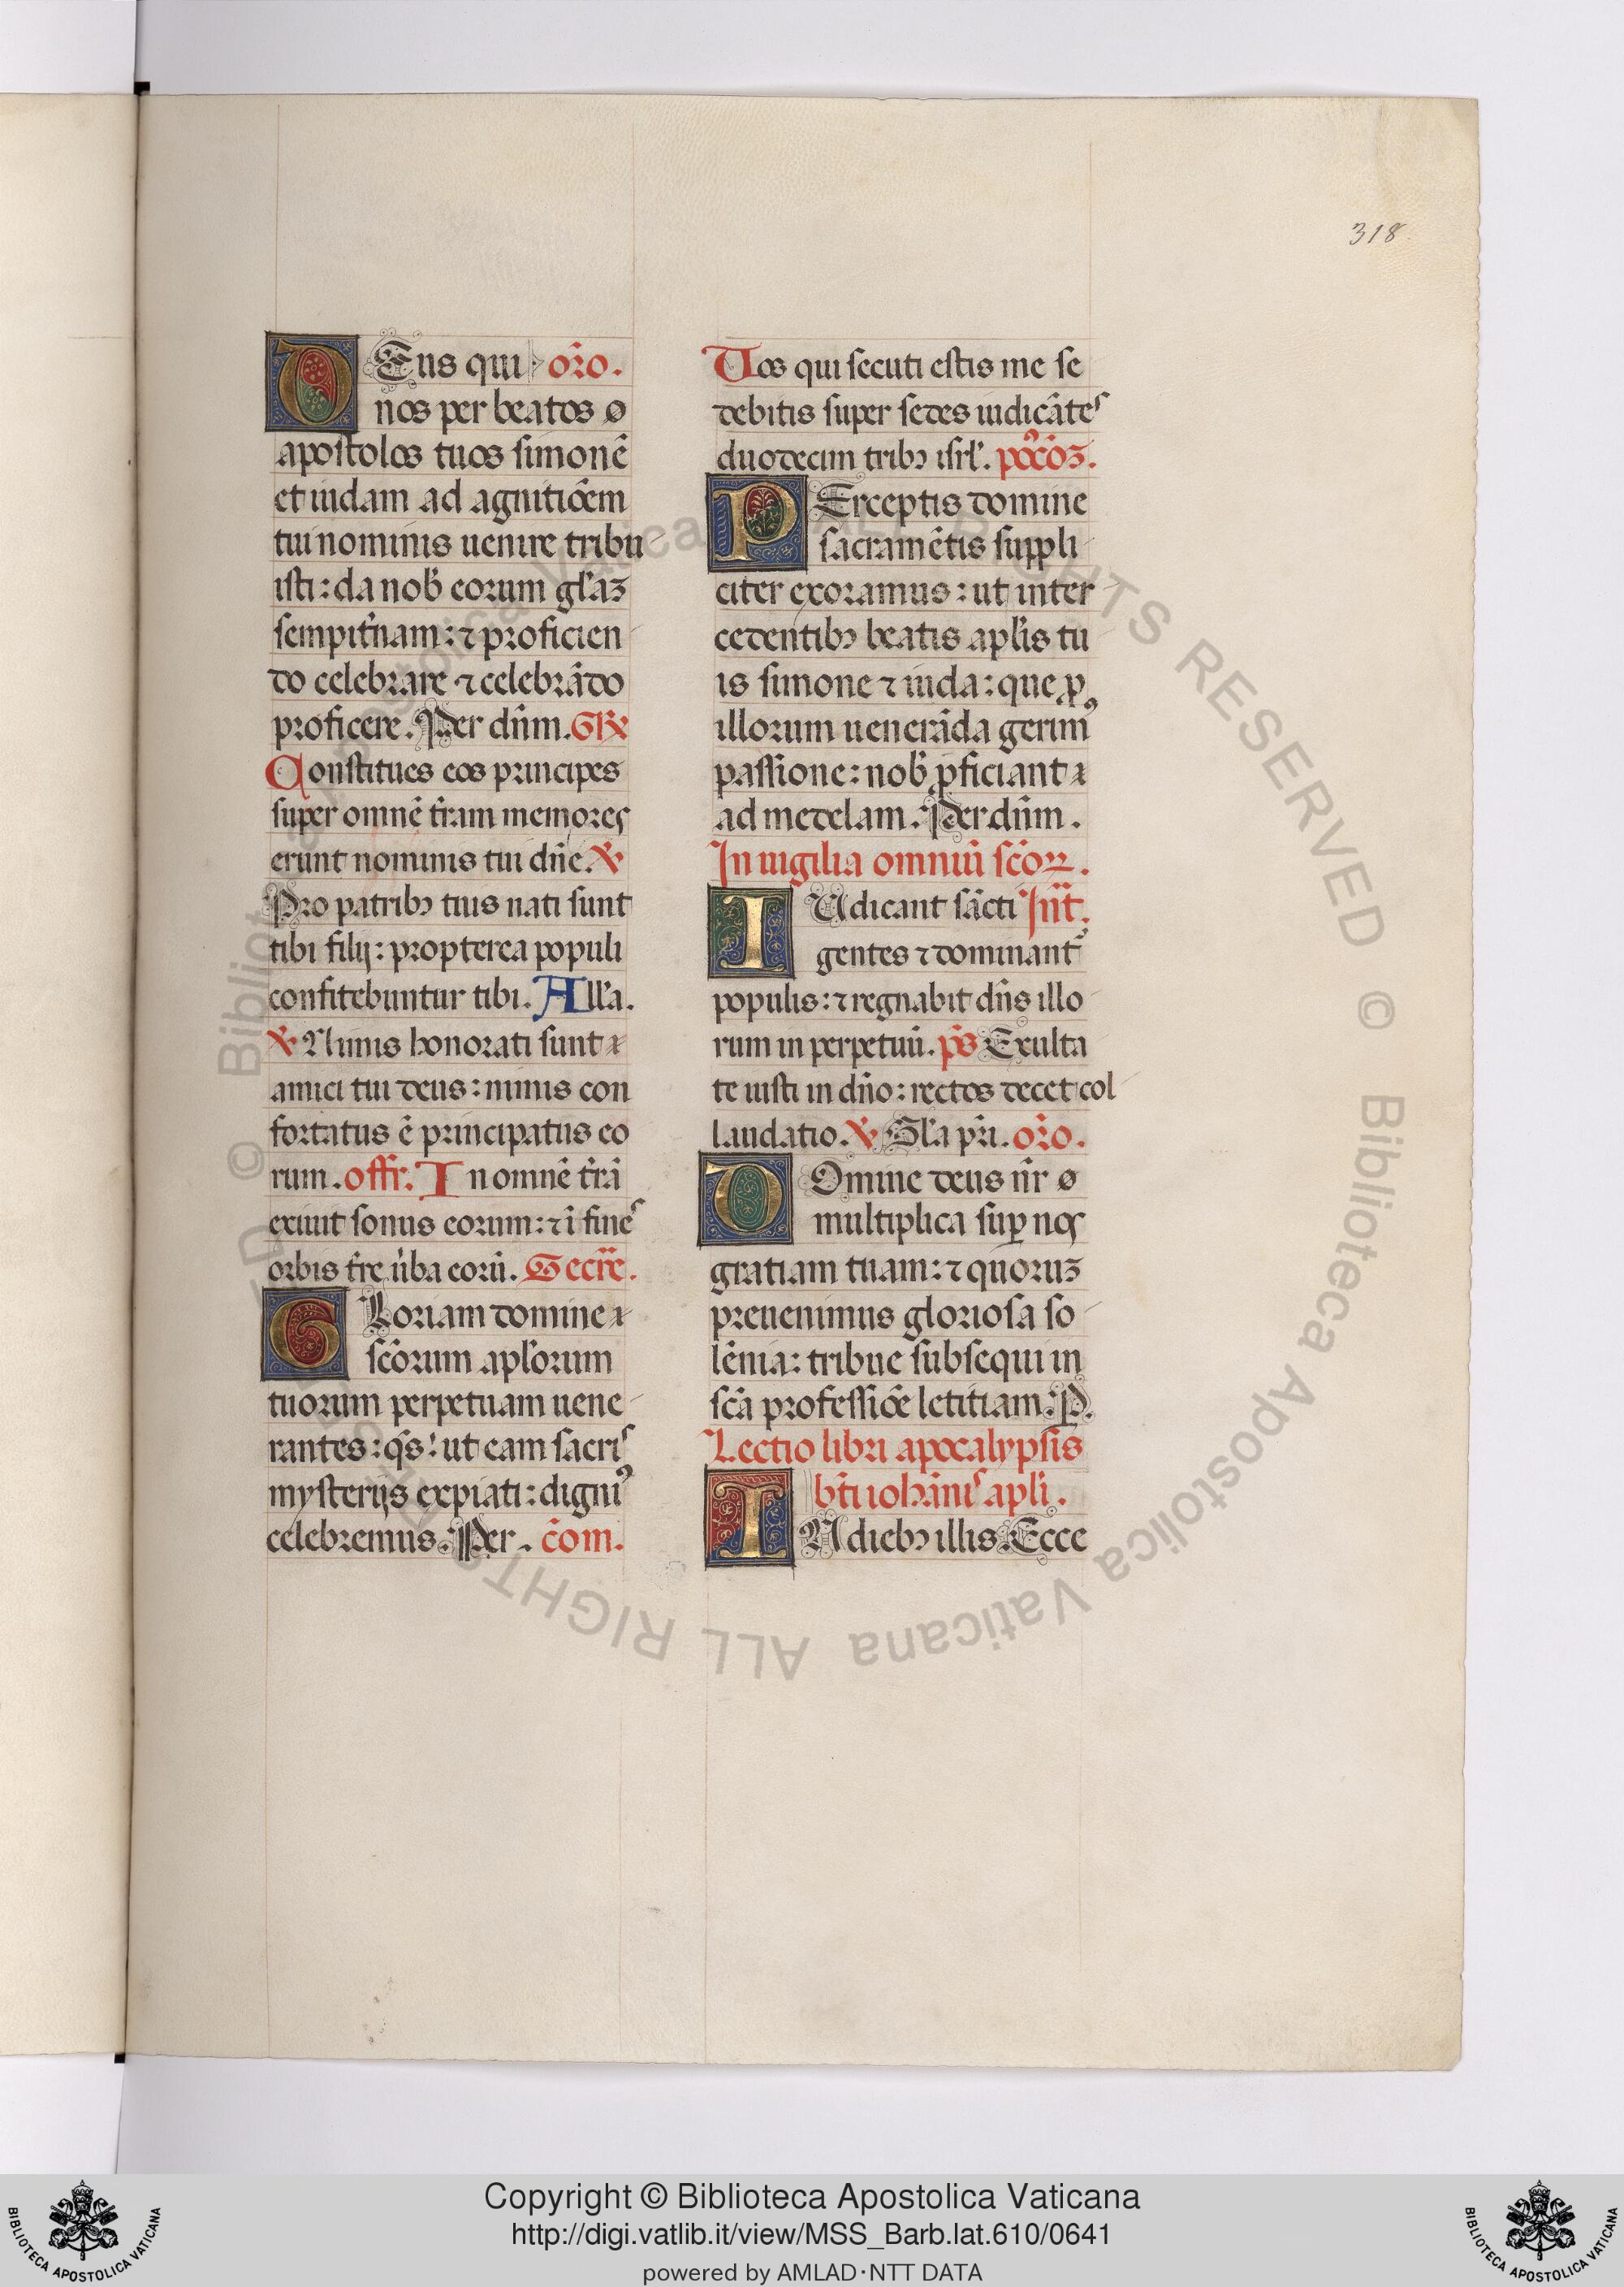 318
DEus qui oro͂.
nos per beatos ø
apostolos tuos simonē
et iudam ad agnitiōem
tui nominis uenire tribu
isti: da nob̄ eorum gl̄aꝫ
sempit̄nam: ⁊ proficien
do celebrare ⁊ celebrādo
proficere. Per dn̄m. GR̄
Constitues eos principes
super omnē t̄ram memores
erunt nominis tui dn̄e. ℣
Pro patribꝫ tuis nati sunt
tibi filij: propterea populi
confitebuntur tibi. All̄a.
℣ Nimis honorati sunt
amici tui deus: nimis con
fortatus ē principatus eo
rum. offr̄. In omnē t̄rā
exiuit sonus eorum: ⁊ ī fines
orbis t̄re ūba eorū. Secr̄e.
GLoriam domine
sc̄orum apl̄orum
tuorum perpetuam uene
rantes: qs̄: ut eam sacris
mysterijs expiati: digniꝰ
celebremus. Per. cōm.
Uos qui secuti estis me se
debitis super sedes iudicātes
duodecim tribꝫ isrl̄. pꝰcōꝫ.
PErceptis domine
sacramētis suppli
citer exoramus: ut inter
cedentibꝫ beatis apl̄is tu
is simone ⁊ iuda: que ꝓ
illorum uenerāda gerimꝰ
passione: nob̄ ꝓficiant
ad medelam. Per dn̄m.
In uigilia omniū sc̄oꝝ.
IUdicant sācti Int̄.
gentes ⁊ dominant̄
populis: ⁊ regnabit dn̄s illo
rum in perpetuū. ps̄ Exulta
te iusti in dn̄o: rectos decet col
laudatio. ℣ Gl̄a pr̄i. oro͂.
DOmine deus nr̄ ø
multiplica suꝑ nos
gratiam tuam: ⁊ quoruꝫ
preuenimus gloriosa so
lēnia: tribue subsequi in
sc̄ā professiōe letitiam. P.
Lectio libri apocalypsis
bt̄i iohānis apl̄i.
IN diebꝫ illis. Ecce
© Biblioteca Apostolica Vaticana ALL RIGHTS RESERVED © Biblioteca Apostolica Vaticana ALL RIGHTS RESERVED
Copyright © Biblioteca Apostolica Vaticana
http://digi.vatlib.it/view/MSS_Barb.lat.610/0641
powered by AMLAD·NTT DATA
BIBLIOTECA APOSTOLICA VATICANA
BIBLIOTECA APOSTOLICA VATICANA